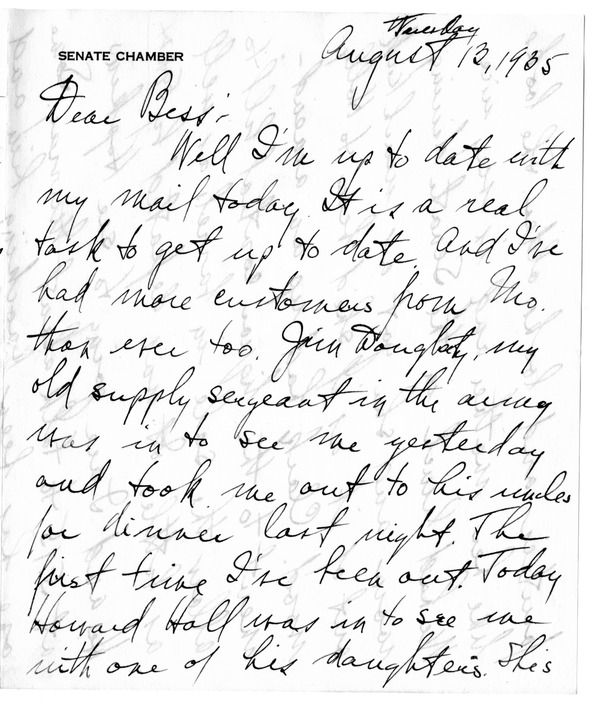 Tuesday
SENATE CHAMBER
August 13, 1935
Dear Bess:
Well I'm up to date with
my mail today. It is a real
task to get up to date. And I've
had more customers from Mo.
than ever too. Jim Dougherty, my
old supply sergeant in the army
was in to see me yesterday
and took me out to his uncles
for dinner last night. The
first time I've been out. Today
Howard Hall was in to see me
with one of his daughters. She's